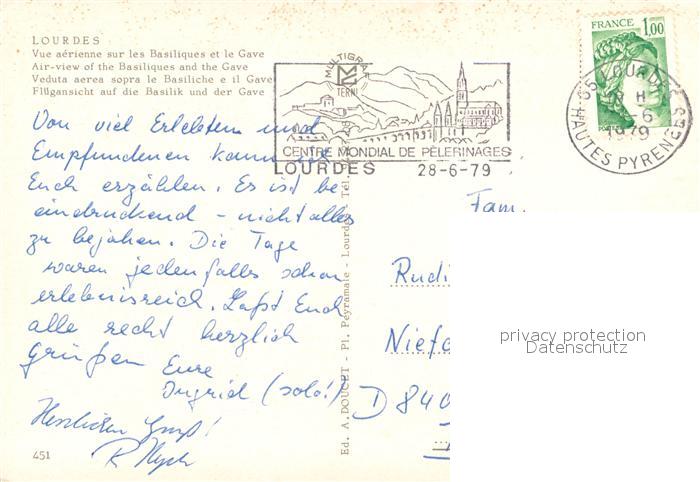 LOURDES
Vue aérienne sur les Basiliques et le Gave
Air-view of the Basiliques and the Gave
Veduta aerea sopra le Basiliche e il Gave
Flügansicht auf die Basilik und der Gave
MULTIGRAF
TERNI
CENTRE MONDIAL DE PÈLERINAGES
LOURDES 28-6-79
FRANCE 1,00
65 LOURDES
H
6
1979
HAUTES PYRENEES
Von viel Erlebtem und
Empfundenen kann ich
Euch erzählen. Es ist be-
eindruckend - nicht alles
zu bejahen. Die Tage
waren jedenfalls schon
erlebnisreich. Laßt Euch
alle recht herzlich
grüßen Eure
Ingrid (solo!)
Herzlichen Gruß!
Fam.
Rudi
Niefe
D 840
privacy protection
Datenschutz
Ed. A. DOUCET - Pl. Peyramale - Lourdes - Tél.
451